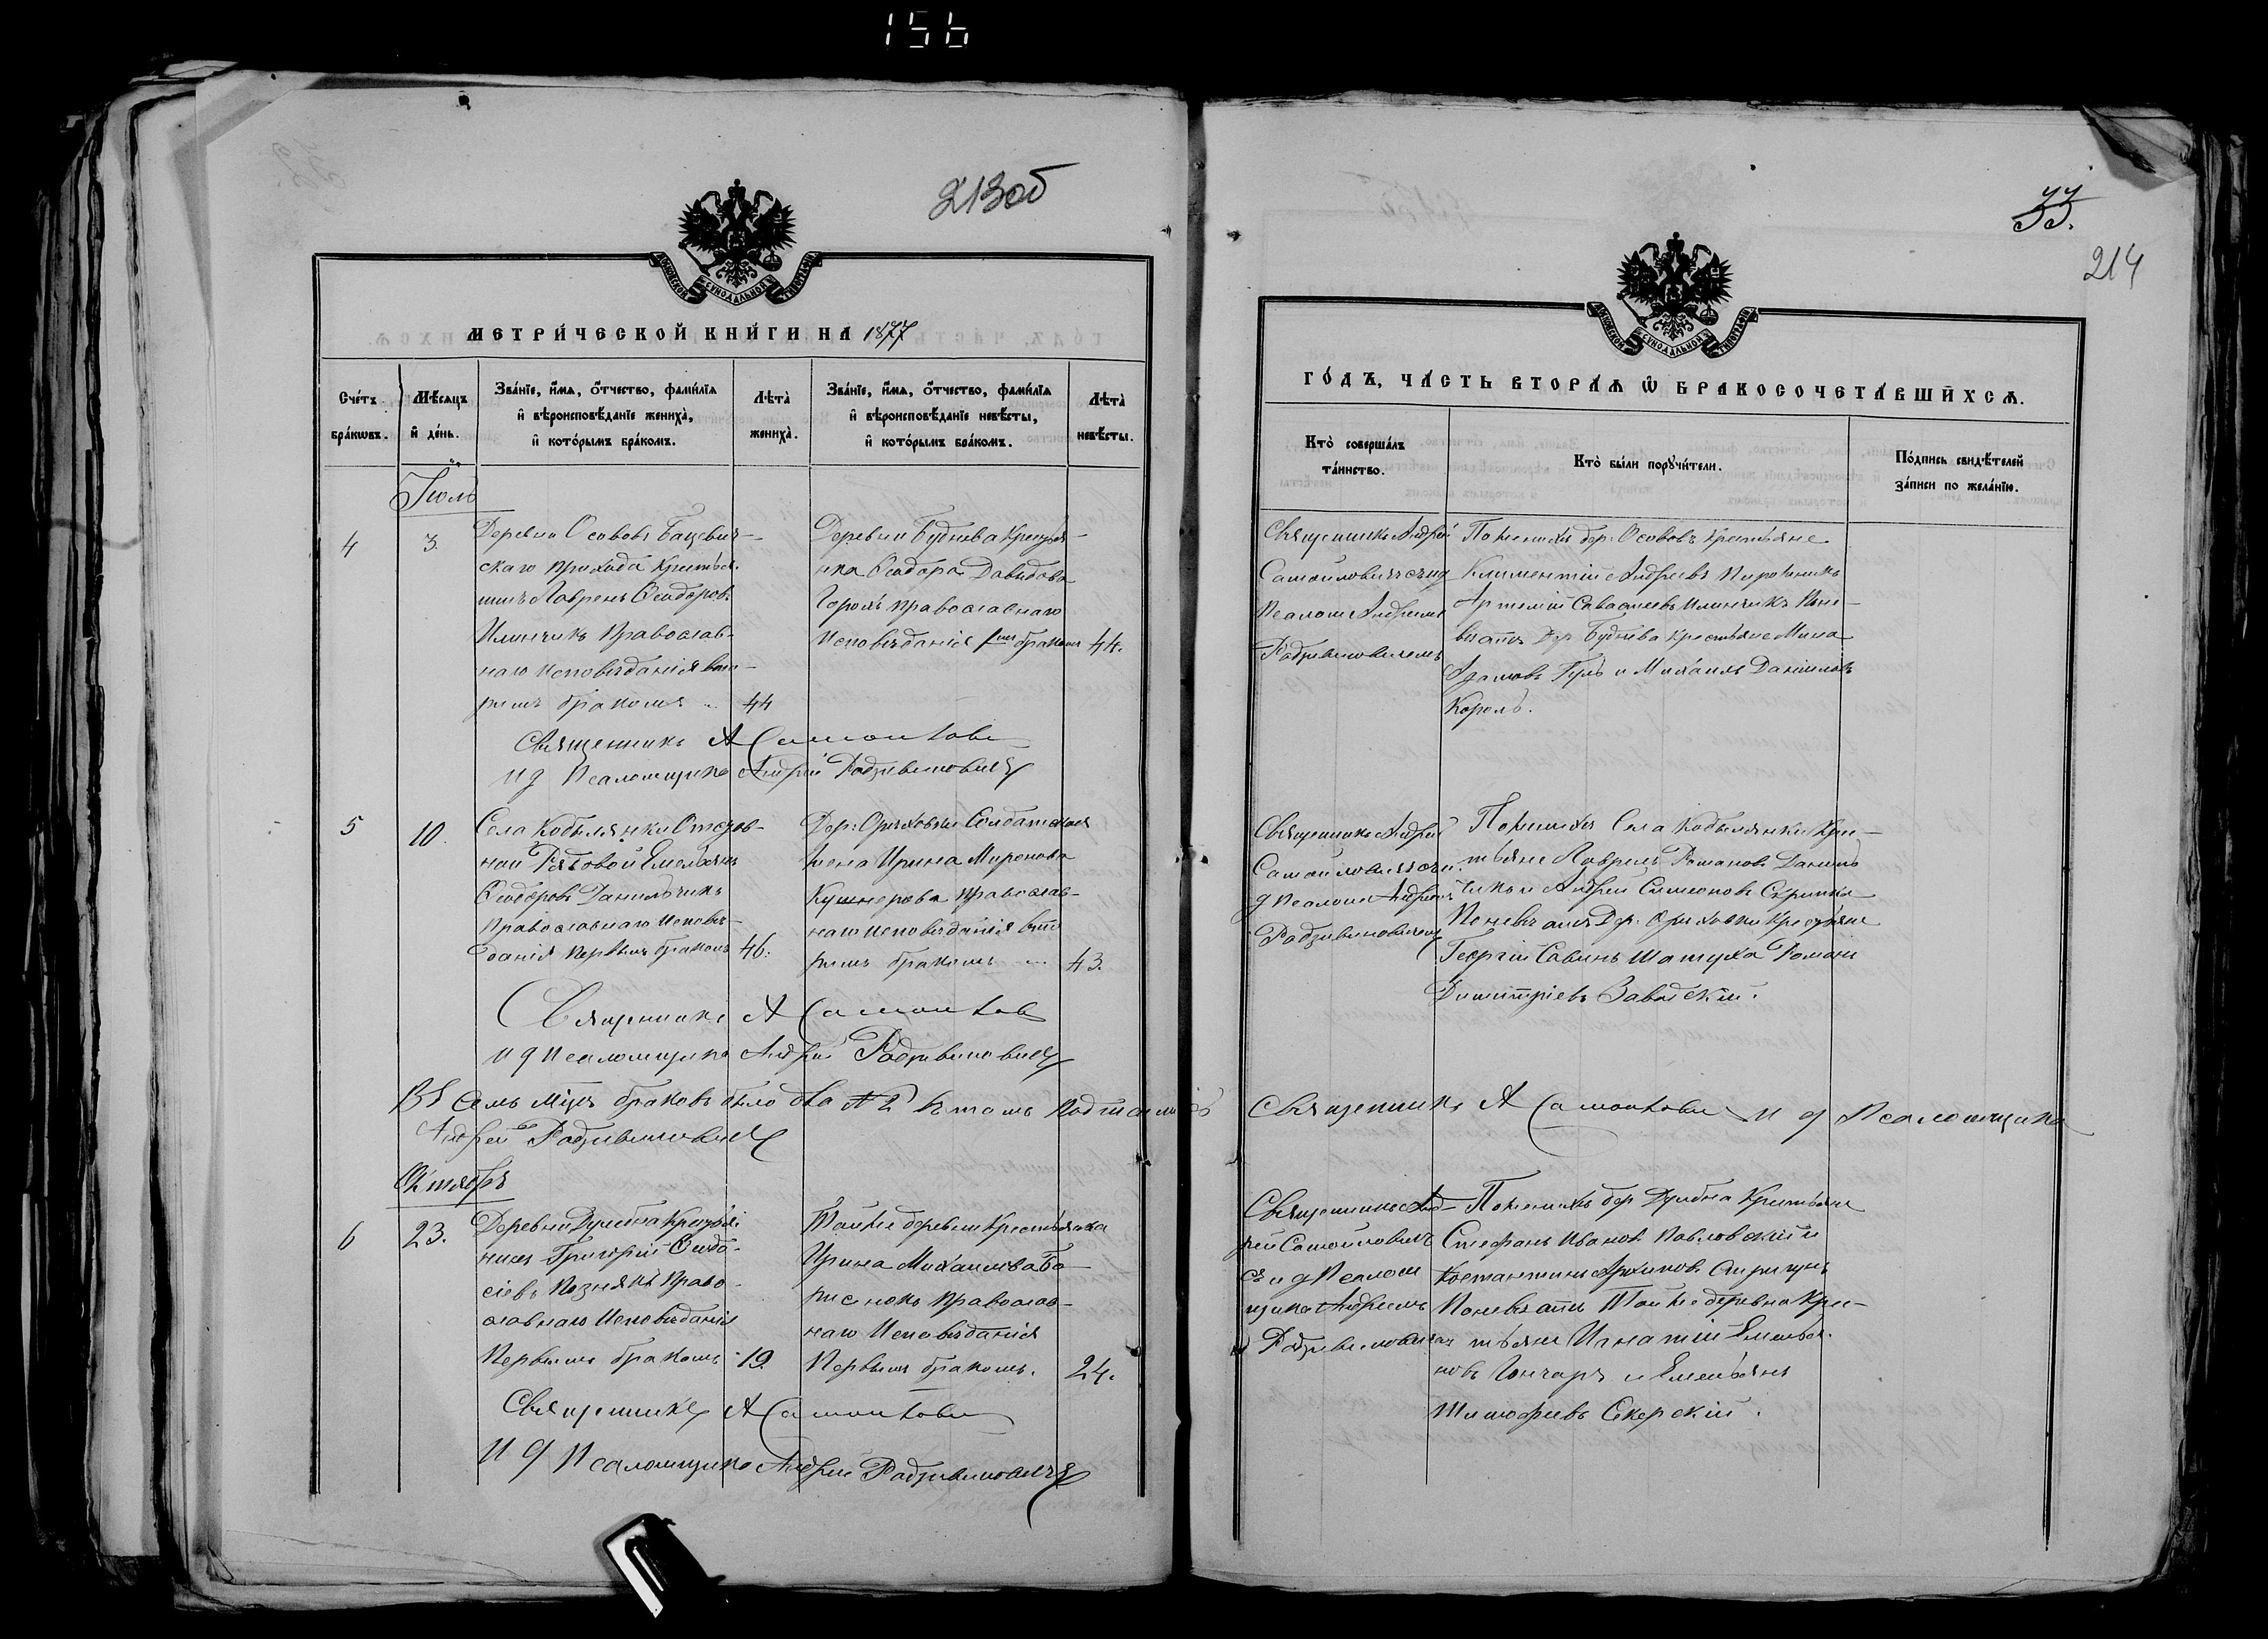 156
213об
МЕТРИ́ЧЕСКОЙ КНИ́ГИ НА 1877
Сче́тъ бра́кѡвъ.
Мѣ́сяцъ и҆ де́нь.
Зва́нїе, и҆́мя, ѻ҆́тчество, фами́лїя и҆ вѣроисповѣ́данїе жениха̀, и҆ кото́рымъ бра́комъ.
Лѣта̀ жениха̀.
Зва́нїе, и҆́мя, ѻ҆́тчество, фами́лїя и҆ вѣроисповѣ́данїе невѣ́сты, и҆ кото́рымъ бра́комъ.
Лѣта̀ невѣ́сты.
Іюль
4
3.
Деревни Осововъ Бацевич-
скаго прихода крестья-
нинъ Лавренъ Ѳеодоровъ
Илинчикъ Православ-
наго исповѣданія вто-
рымъ бракомъ
44
Деревни Буднева крестья-
нка Ѳеодора Давидова
православнаго
исповѣданія 1мъ бракомъ
44.
Священникъ А Самойлови
И д Псаломщика Андрей Радзивиновичъ
5
10.
Села Кобылянки Отстав-
ной Рядовой Емельянъ
Ѳеодоровъ Данильчикъ
Православнаго исповѣ-
данія первымъ бракомъ
46.
Дер: Орѣховки Солдатская
жена Ирина Миронова
Кушнерова православ-
наго исповѣданія вто
рымъ бракомъ
43.
Священникъ А Самойлов
И д Псаломщика Андрей Радзивиновичъ
Въ семъ м҃цѣ браковъ было два № 2 въ томъ подписались
Андрей Радзивиновичъ
Октябрь
6
23.
Деревни Дулебна крестья-
нинъ Григорій Ѳеодо-
сіевъ Познякъ Право-
славнаго исповѣданія
первымъ бракомъ
19.
Той же деревни крестьянка
Ирина Михаилова Бо-
рисенокъ православ-
наго исповѣданія
первымъ бракомъ.
24.
Священникъ А Самойлови
И д Псаломщика Андрей Радзивиновичъ
33.
214
ГО́ДЪ, ЧА́СТЬ ВТОРА́Я Ѡ БРАКОСОЧЕТА́ВШИХСЯ.
Кто̀ соверша́лъ та́инство.
Кто̀ бы́ли порꙋчи́тели.
По́дпись свидѣ́телей за́писи по жела́нїю.
Священникъ Андрей
Самойловичъ съ и д
Псалом Андреемъ
Радзивиновичемъ
По женихѣ дер: Осововъ крестьяне
Климентій Андреевъ Пирожникъ
Артемій Савастеевъ Илинчикъ По не-
вѣстѣ дер Буднева крестьяне Мина
и Михаилъ Даниловъ
Король.
Священникъ Андрей
Самойловичъ съ и.
д Псалом Андреемъ
Радзивиновичемъ
По женихѣ Села Кобылянки крес-
тьяне Лаврень Романовъ Даниль
чикъ и Андрей Симеоновъ Скрипка
По невѣстѣ Дер. Орѣховки крестьяне
Георгій Савинъ Шатуха Романъ
Димитріевъ Завадскій.
Священникъ А Самойлови и д Псаломщика
Священникъ Анд-
рей Самойловичъ
съ и д Псалом
щика Андреемъ
Радзивиновичемъ
По женихѣ дер Дулебна крестьяне
Стефанъ Ивановъ Павловскій и
Костантинъ Архиповъ
По невѣстѣ Той же деревни крес-
тьяне Игнатій Емелья-
новъ Гончаръ и Емельянъ
Тимофеевъ Секерскій.